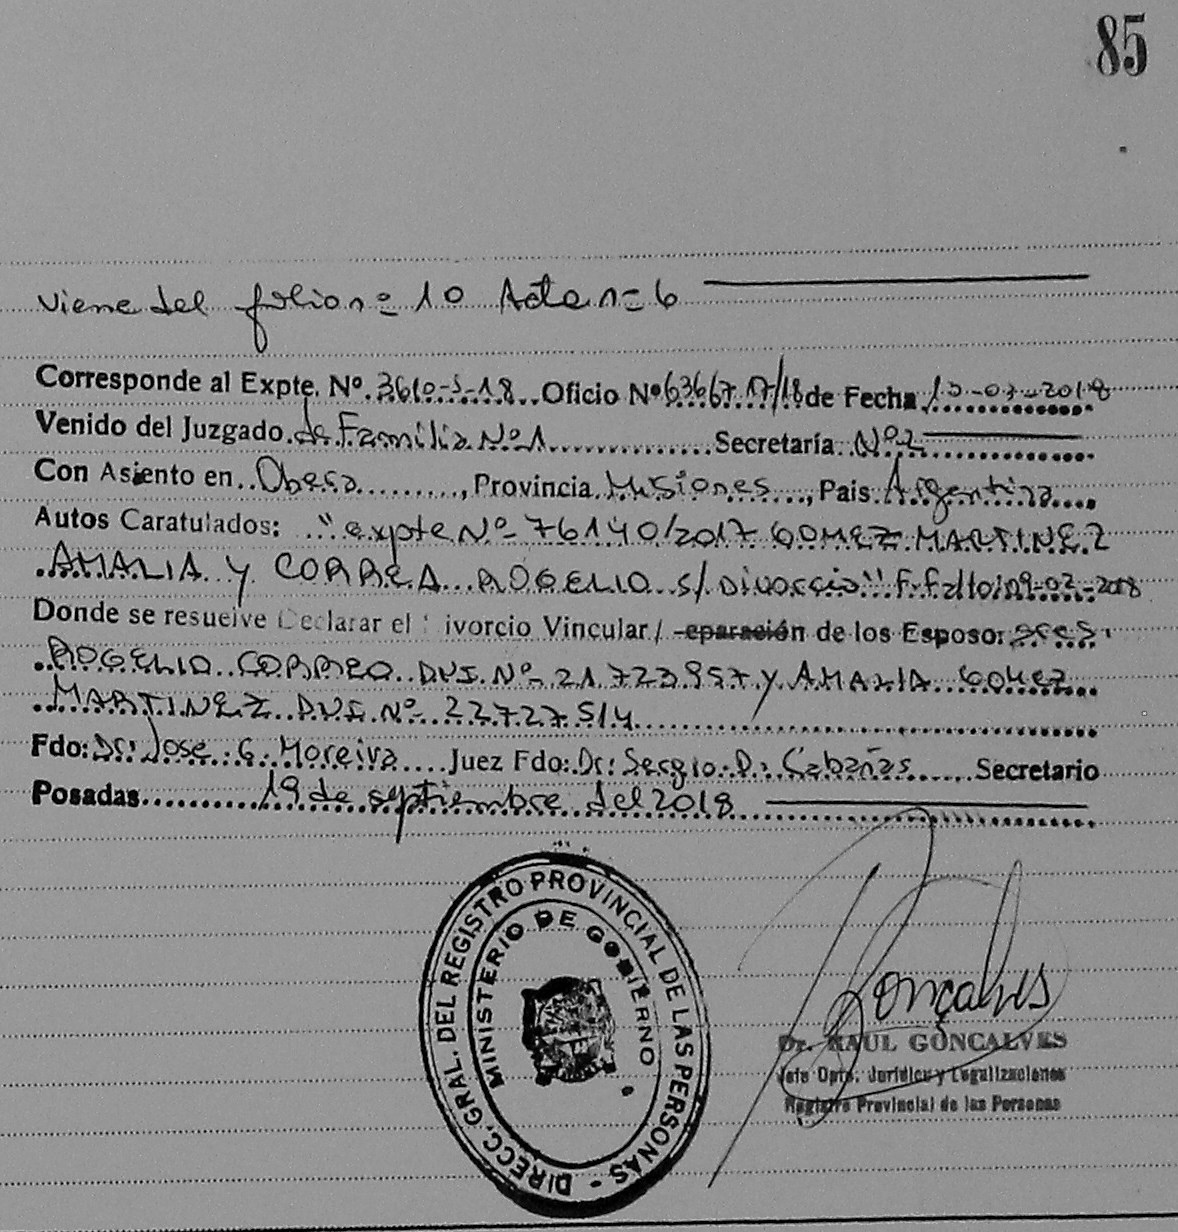 85
Viene del folio nº 10 Acta nº 6
Corresponde al Expte. Nº 3610-S-18 Oficio Nº 63667.17/18 de Fecha 13-07-2018
Venido del Juzgado de Familia Nº 1 Secretaría Nº 2
Con Asiento en Obera, Provincia Misiones, Pais Argentina
Autos Caratulados: "expte Nº 76140/2017 GOMEZ MARTINEZ
AMALIA Y CORREA ROGELIO s/ Divorcio" F. Fallo: 09-02-2018
Donde se resuelve Declarar el ivorcio Vincular/ eparación de los Esposo: sres.
ROGELIO CORREO DNI. Nº 21.723.957 y AMALIA GOMEZ
MARTINEZ DNI. Nº 22727514
Fdo: Dr: Jose G. Moreira Juez Fdo: Dr: Sergio D. Cabañas Secretario
Posadas 19 de septiembre del 2018
DIRECC. GRAL. DEL REGISTRO PROVINCIAL DE LAS PERSONAS -
MINISTERIO DE GOBIERNO
Gonçalves
Dr. RAUL GONCALVES
Jefe Dpto. Jurídico y Legalizaciones
Registro Provincial de las Personas